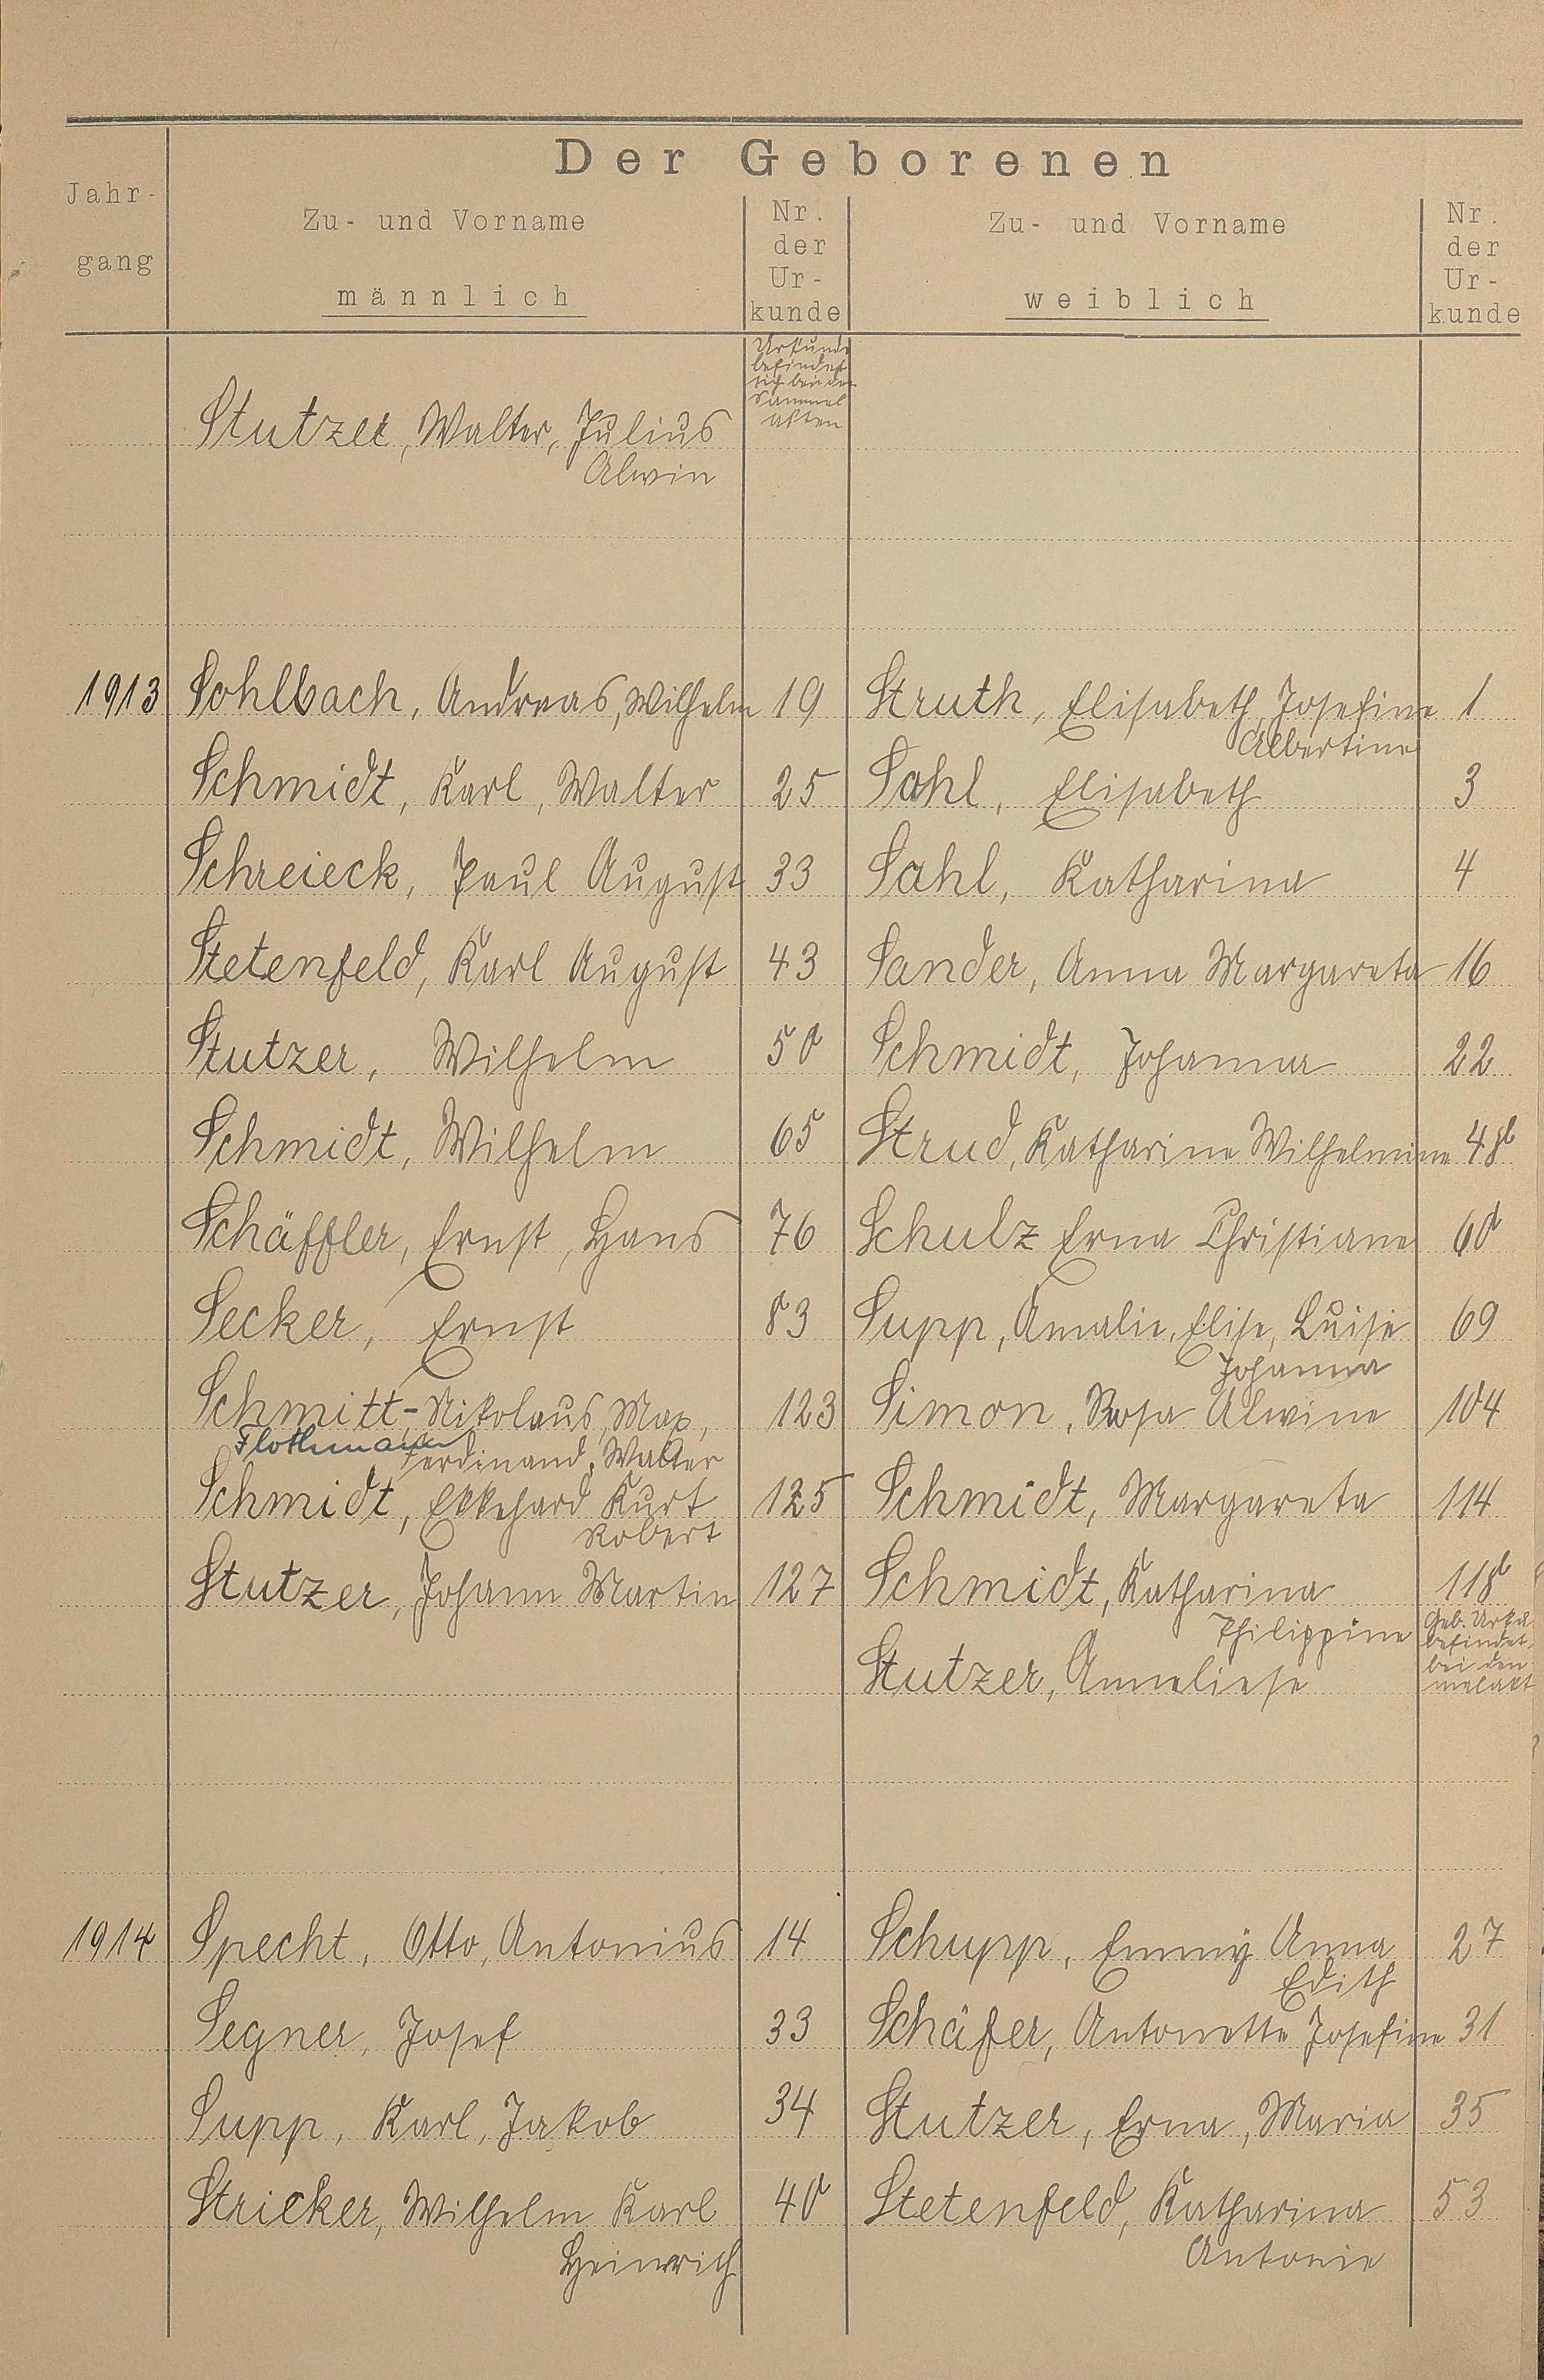 Der Geborenen
Jahr-
gang
Zu- und Vorname
männlich
Nr.
der
Ur-
kunde
Zu- und Vorname
weiblich
Nr.
der
Ur-
kunde
Urkunde
befindet
sich bei den
Sammel
akten
Stutzer, Walter, Julius
Alwin
1913 Sohlbach, Andreas, Wilhelm 19 Struth, Elisabeth, Josefine 1
Albertine
Schmidt, Karl, Walter 25 Sahl, Elisabeth 3
Schreieck, Paul August 33 Sahl, Katharina 4
Stetenfeld, Karl August 43 Sander, Anna Margareta 16
Stutzer, Wilhelm 50 Schmidt, Johanna 22
Schmidt, Wilhelm 65 Strud, Katharine Wilhelmine 48
Schäffler, Ernst, Hans 76 Schulz Erna Christiane 60
Secker, Ernst 83 Supp, Amalie, Elise, Luise 69
Johanna
Schmitt-Nikolaus, Max, 123 Simon, Rosa Alwine 104
Flothmann
Ferdinand, Walter
Schmidt, Ekkehard Kurt 125 Schmidt, Margareta 114
Robert
Stutzer, Johann Martin 127 Schmidt, Katharina 118
Philippine
Geb. Urkd.
befindet
bei den
melakt
Stutzer, Anneliese
1914 Specht, Otto, Antonius 14 Schupp, Emmy Anna 27
Edith
Segner, Josef 33 Schäfer, Antonette Josefine 31
Supp, Karl, Jakob 34 Stutzer, Erna, Maria 35
Stricker, Wilhelm Karl 40 Stetenfeld, Katharina 53
Heinrich
Antonie